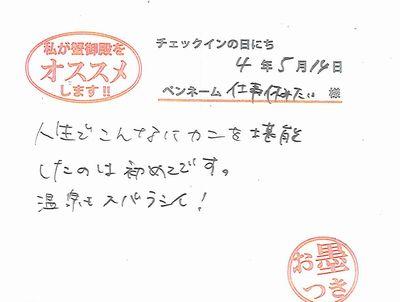 私が蟹御殿を
オススメ
します!!
チェックインの日にち
4年5月14日
ペンネーム 仕事休みたい 様
人生でこんなにカニを堪能
したのは初めてです。
温泉もスバラシイ!
お墨
つき